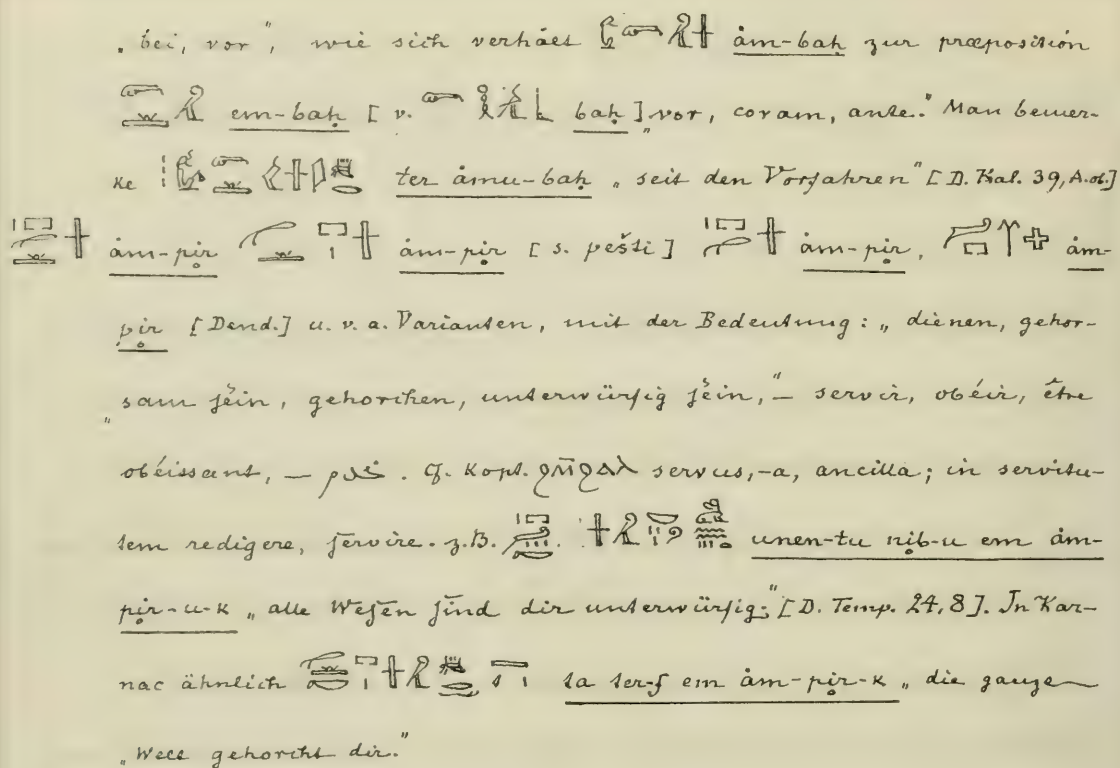 „bei, vor“, wie sich verhält ȧm-baḥ zur præposition
em-baḥ [v. baḥ] „vor, coram, ante.“ Man bemer-
ke ter ȧmu-baḥ „seit den Vorfahren“ [D. Kal. 39, A.ob.]
ȧm-pir ȧm-pir [s. pešti] ȧm-pir, ȧm-
pir [Dend.] u. v. a. Varianten, mit der Bedeutung: „dienen, gehor-
„sam sein, gehorchen, unterwürfig sein,“ – servir, obéir, être
obéissant, – خدم. Cf. Kopt. ϩⲙ̄ϩⲁⲗ servus, -a, ancilla; in servitu-
tem redigere, servire. z.B. unen-tu nib-u em ȧm-
pir-u-k „alle Wesen sind dir unterwürfig;“ [D. Temp. 24, 8]. In Kar-
nac ähnlich ta ter-f em ȧm-pir-k „die ganze
„Welt gehorcht dir.“